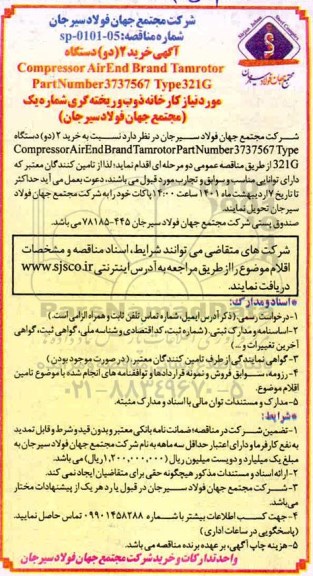 شرکت مجتمع جهان فولاد سیرجان
شماره مناقصه: sp-0101-05
آگهی خرید ۲ (دو) دستگاه
Compressor AirEnd Brand Tamrotor
PartNumber3737567 Type321G
مورد نیاز کارخانه ذوب و ریخته گری شماره یک
(مجتمع جهان فولاد سیرجان)
مجتمع جهان فولاد سیرجان
شرکت مجتمع جهان فولاد سیرجان در نظر دارد نسبت به خرید ۲ (دو) دستگاه
CompressorAirEndBrandTamrotorPartNumber3737567 Type
321G از طریق مناقصه عمومی دو مرحله ای اقدام نماید؛ لذا از تامین کنندگان معتبر که
دارای توانایی مناسب و سوابق و تجارب مورد قبول می باشند، دعوت بعمل می آید حداکثر
تا تاریخ ۷ اردیبهشت ماه ۱۴۰۱ ساعت ۱۴:۰۰ پاکات خود را به شرکت مجتمع جهان فولاد
سیرجان تحویل نمایند.
صندوق پستی شرکت مجتمع جهان فولاد سیرجان ۴۴۵-۷۸۱۸۵ می باشد.
شرکت های متقاضی می توانند شرایط، اسناد مناقصه و مشخصات
اقلام موضوع را از طریق مراجعه به آدرس اینترنتی www.sjsco.ir
دریافت نمایند.
*اسناد و مدارک:
۱-درخواست رسمی (ذکر آدرس ایمیل، شماره تماس تلفن ثابت و همراه الزامی است.)
۲-اساسنامه و مدارک ثبتی (شماره ثبت، کد اقتصادی و شناسه ملی، گواهی ثبت، گواهی
آخرین تغییرات و...)
۳-گواهی نمایندگی از طرف تامین کنندگان معتبر، (در صورت موجود بودن)
۴-رزومه، سوابق فروش و نمونه قراردادها و توافقنامه های انجام شده با موضوع تامین
اقلام موضوع.
۵-مدارک و مستندات توان مالی با اسناد و مدارک مثبته.
۰۲۱-۸۸۳۴۹۶۷۰-۵
*شرایط:
۱-تضمین شرکت در مناقصه؛ ضمانت نامه بانکی معتبر و بدون قید و شرط و قابل تمدید
به نفع کارفرما و دارای اعتبار حداقل سه ماهه به نام شرکت مجتمع جهان فولاد سیرجان به
مبلغ یک میلیارد و دویست میلیون ریال (۱,۲۰۰,۰۰۰,۰۰۰ ریال) می باشد.
۲-ارائه اسناد و مستندات مذکور هیچگونه حقی برای متقاضیان ایجاد نمی کند.
۳-شرکت مجتمع جهان فولاد سیرجان در قبول یا رد هر یک از پیشنهادات مختار
می باشد.
۴-جهت کسب اطلاعات بیشتر با شماره ۰۹۹۰۱۴۵۸۲۸۸ تماس حاصل نمایید.
(پاسخگویی در ساعات اداری)
۵-هزینه چاپ آگهی، بر عهده برنده مناقصه می باشد.
واحد تدارکات و خرید شرکت مجتمع جهان فولاد سیرجان